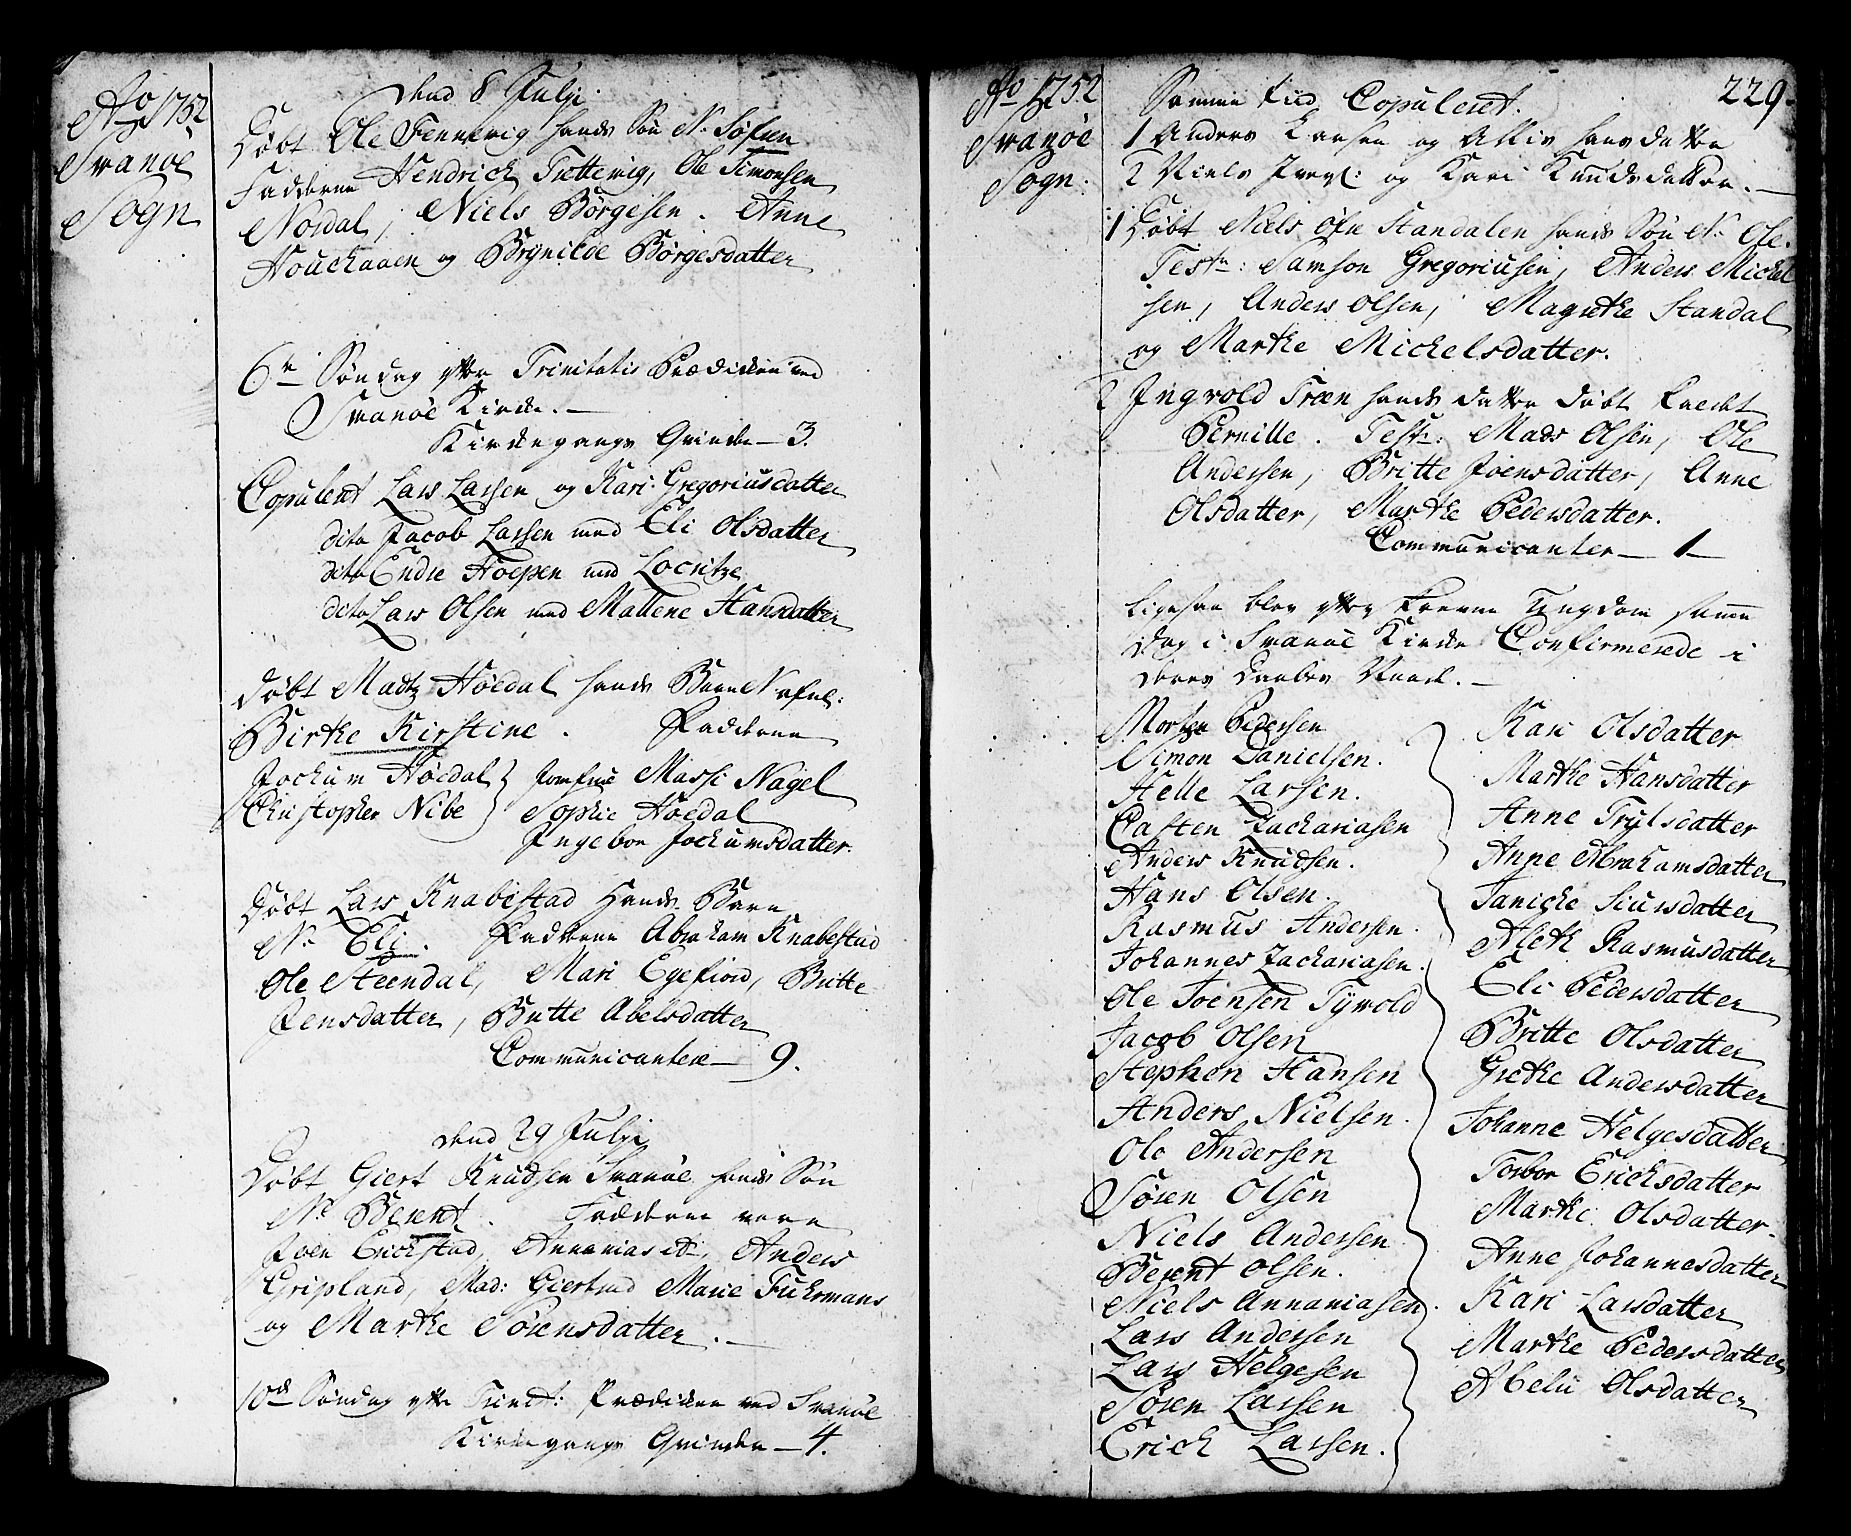 Ao 1752
Svanöe
Sogn
Dend 8 Julji
Döbt Ole Fennevig hands Sön N. Söfren
Faddere Hendrich Tuttevig, Ole Simonsen
Nordal, Niels Börgesen. Anne
Houchaaen og Brynilde Börgesdatter
6te Söndag efter Trinitatis Prædicken ved
Svanöe Kircke.
Kirckegangs Qvinder 3.
Copuleret Lars Larsen og Kari Gregoriusdatter
dito Jacob Larsen med Eli Olsdatter
dito Endre Hoepen med Locritze
dito Lars Olsen med Mallene Hansdatter
Döbt Madtz Höedal hands Barn
Birthe Kirstine. Fadderne
Jockum Höedal Jomfrue Massi Nagel
Christopher Nibe Sophie Höedal
Ingebor Jochumsdatter.
Döbt Lars Knabestad Hands Barn
N. Eli. Fadderne Abraham Knabestad
Ole Steendal, Mari Egefiord, Britte
Jensdatter, Britte Abelsdatter
Communicantere 9.
Dend 29 Julji
Döbt Giert Knudsen Svanöe hands Sön
N. Berent. Fadderne vare
Joen Erichstad, Annanias it: Anders
Gripland, Mad: Giertrud Marie Fuhrmans
og Marthe Sörensdatter.
10de Söndag efter Trinit: Prædicken ved Svanöe
Kirckegangs Qvinder 4.
Ao 1752
Svanöe
Sogn:
229.
Samme tiid Copuleret.
1 Anders Larsen og Hansdatter
2 Niels og Kari Knudsdatter.
1 Döbt Niels Öfre Standalen hands Sön N. Ole.
Test: Samson Gregoriusen, Anders Michel
sen, Anders Olsen, Magrethe Standal
og Marthe Michelsdatter.
2 Ingvold Træn hands datter döbt kaldt
Pernille. Test: Mads Olsen, Ole
Andersen, Britte Joensdatter, Anne
Olsdatter, Marthe Pedersdatter.
Communicanter 1
Ligesaa blev efterskrevne Ungdom samme
Dag i Svanöe Kircke Confirmerede i
deres Daabes Naade.
Morten Pedersen
Simon Danielsen.
Helle Larsen.
Casten Zachariasen
Anders Knudsen.
Hans Olsen.
Rasmus Andersen.
Johannes Zachariasen.
Ole Joensen Tyvold
Jacob Olsen
Stephen Hansen
Anders Nielsen.
Ole Andersen
Sören Olsen
Niels Andersen
Berent Olsen.
Niels Annaniasen.
Lars Andersen
Lars Helgesen
Sören Larsen
Erich Larsen.
Kari Olsdatter
Marthe Hansdatter
Anne Trulsdatter
Anne Abrahamsdatter
Janicke Siursdatter
Aleth Rasmusdatter
Eli Pedersdatter
Britte Olsdatter
Grethe Andersdatter
Johanne Helgesdatter
Torbor Erichsdatter
Marthe Olsdatter.
Anne Johannesdatter
Kari Larsdatter
Marthe Pedersdatter
Abelu Olsdatter